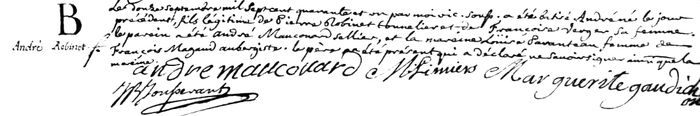 B
Le douse septembre mil sept cent quarante et un par moi vic. souss. a été batisé André né le jour
précédent, fils légitime de Pierre Robinet tonnelier et de Françoise Verger sa femme.
André Robinet le parein a été André Maucouard sellier, et la mareine Louise femme de
François Magaud aubergiste. le père pnt été présent qui a déclaré ne savoir signer ainsi que la
mareine.
andré maucouard Marguerite gaudichon